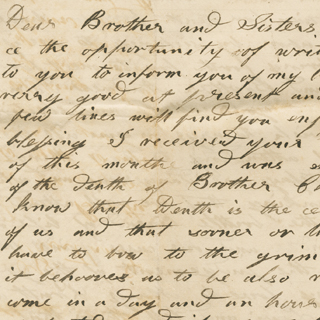 Dear Brother and Sisters
ce the opportunity of writ
to you to inform you of my
very good at present an
few lines will find you enj
blessing I received your
of this month and was s
of the death of Brother
know that Death is the ce
of us and that sooner or l
have to bow to the grim
it behooves us to be also r
come in a day and an hour